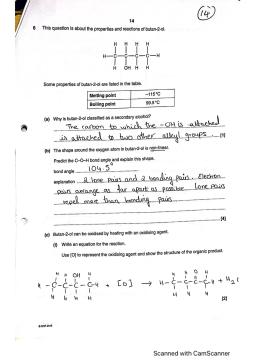 14
14
6 This question is about the properties and reactions of butan-2-ol.
H H H H
H C C C C H
H OH H H
Some properties of butan-2-ol are listed in the table.
Melting point −115°C
Boiling point 99.5°C
(a) Why is butan-2-ol classified as a secondary alcohol?
The carbon to which the -OH is attached
is attached to two other alkyl groups. [1]
(b) The shape around the oxygen atom in butan-2-ol is non-linear.
Predict the C–O–H bond angle and explain this shape.
bond angle 104.5°
explanation 2 lone pairs and 2 bonding pairs. Electron
pairs arrange as far apart as possible lone pairs
repel more than bonding pairs
[4]
(c) Butan-2-ol can be oxidised by heating with an oxidising agent.
(i) Write an equation for the reaction.
Use [O] to represent the oxidising agent and show the structure of the organic product.
H H OH H H H O H
H-C-C-C-C-H + [O] → H-C-C-C-C-H + H2O
H H H H H H H
[2]
Scanned with CamScanner